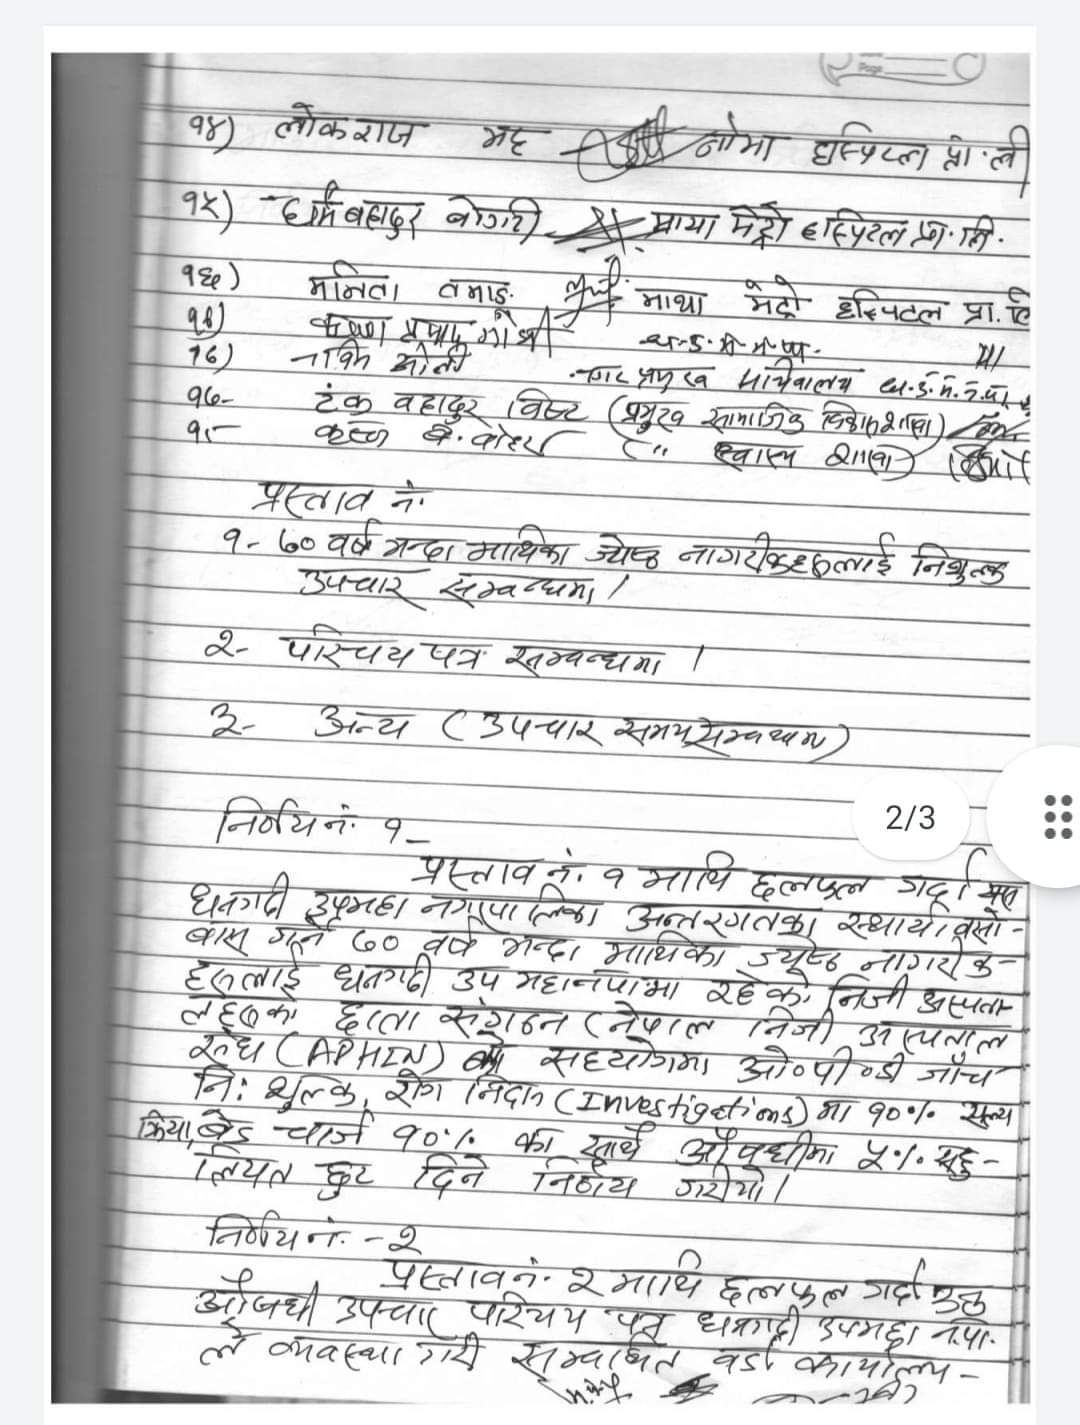 Page
१४) लोकराज भट्ट नोभा हस्पिटल प्रा.ली
१५) धर्म बहादुर बोगटी माया मेट्रो हस्पिटल प्रा. लि.
१६) मनिता तमाङ माया मेट्रो हस्पिटल प्रा. लि
१७)
१८) नगर प्रमुख सचिवालय ध.उ.म.न.पा.
१९- टंक बहादुर विष्ट (प्रमुख सामाजिक विकास शाखा)
(" स्वास्थ्य शाखा)
प्रस्ताव नं.
१- ७० वर्ष भन्दा माथिका ज्येष्ठ नागरीकहरुलाई निशुल्क
उपचार सम्वन्धमा।
२- परिचय पत्र सम्वन्धमा।
३- अन्य (उपचार समय सम्वन्धमा)
2/3
निर्णय नं. १-
प्रस्ताव नं. १ माथि छलफल गर्दा यस
धनगढी उपमहा नगरपालिका अन्तरगतका स्थायी वसो-
बास गर्ने ७० वर्ष भन्दा माथिका ज्येष्ठ नागरीक-
हरुलाई धनगढी उप महानपामा रहेका निजी अस्पता-
लहरुका छाता संगठन (नेपाल निजी अस्पताल
संघ (APHIN) को सहयोगमा ओ०पी०डी जाँच
नि: शुल्क, रोग निदान (Investigations) मा १०% शल्य
क्रिया, बेड चार्ज १०% का साथै औषधीमा ५% सहु-
लियत छुट दिने निर्णय गरीयो।
निर्णय नं. -२
प्रस्ताव नं. २ माथि छलफल गर्दा उक्त
औषधी उपचार परिचय पत्र धनगढी उपमहा न.पा.
ले व्यवस्था गरी सम्वन्धित वडा कार्यालय-